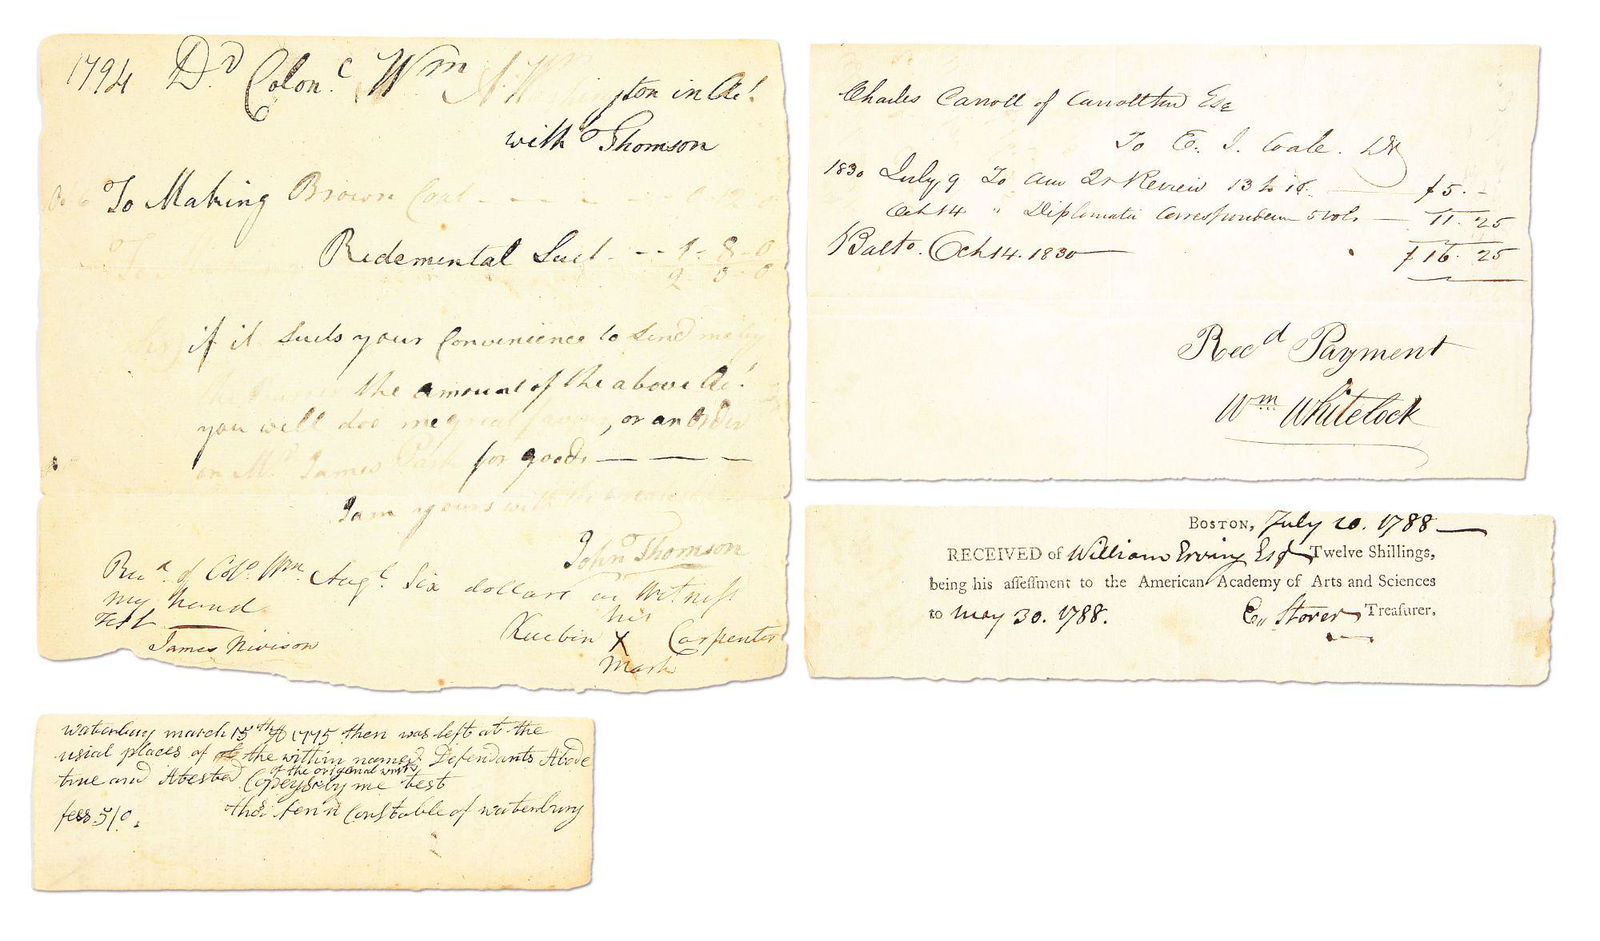 1794 Dr Colonl. Wm A. Washington in Act.
with Thomson
To Making Brown Coat
Redemental Suit - - 1 - 8 - 0
2 0 0
Sir, if it suits your Convenience to send me by
the the amount of the above Act.
you will doo me great favour, or an Order
on Mr. James for goods
I am yours with
John Thomson
Recd. of Colo. Wm. Augt. Six dollars as Witness
my hand
his
Test
Ruebin X Carpenter
James Nivison
mark
Charles Carroll of Carrollton Esq
To E. J. Coale. Dr
1830 July 9 To Am Qr Review 13 to 16. $5. -
Oct 14 " Diplomatic Correspondence 5 vols 11. 25
Balto. Oct 14. 1830 $ 16. 25
Recd Payment
Wm Whitelock
BOSTON, July 10. 1788
RECEIVED of William Erving Esqr Twelve Shillings,
being his assessment to the American Academy of Arts and Sciences
to May 30. 1788. E. Storer Treasurer.
waterbury march 15th AD 1775 then was left at the
usial places of the within named Defendants Abode
true and Atested Copeys by me test
of the original writ
fees 5/0. thos fenn Constable of waterbury